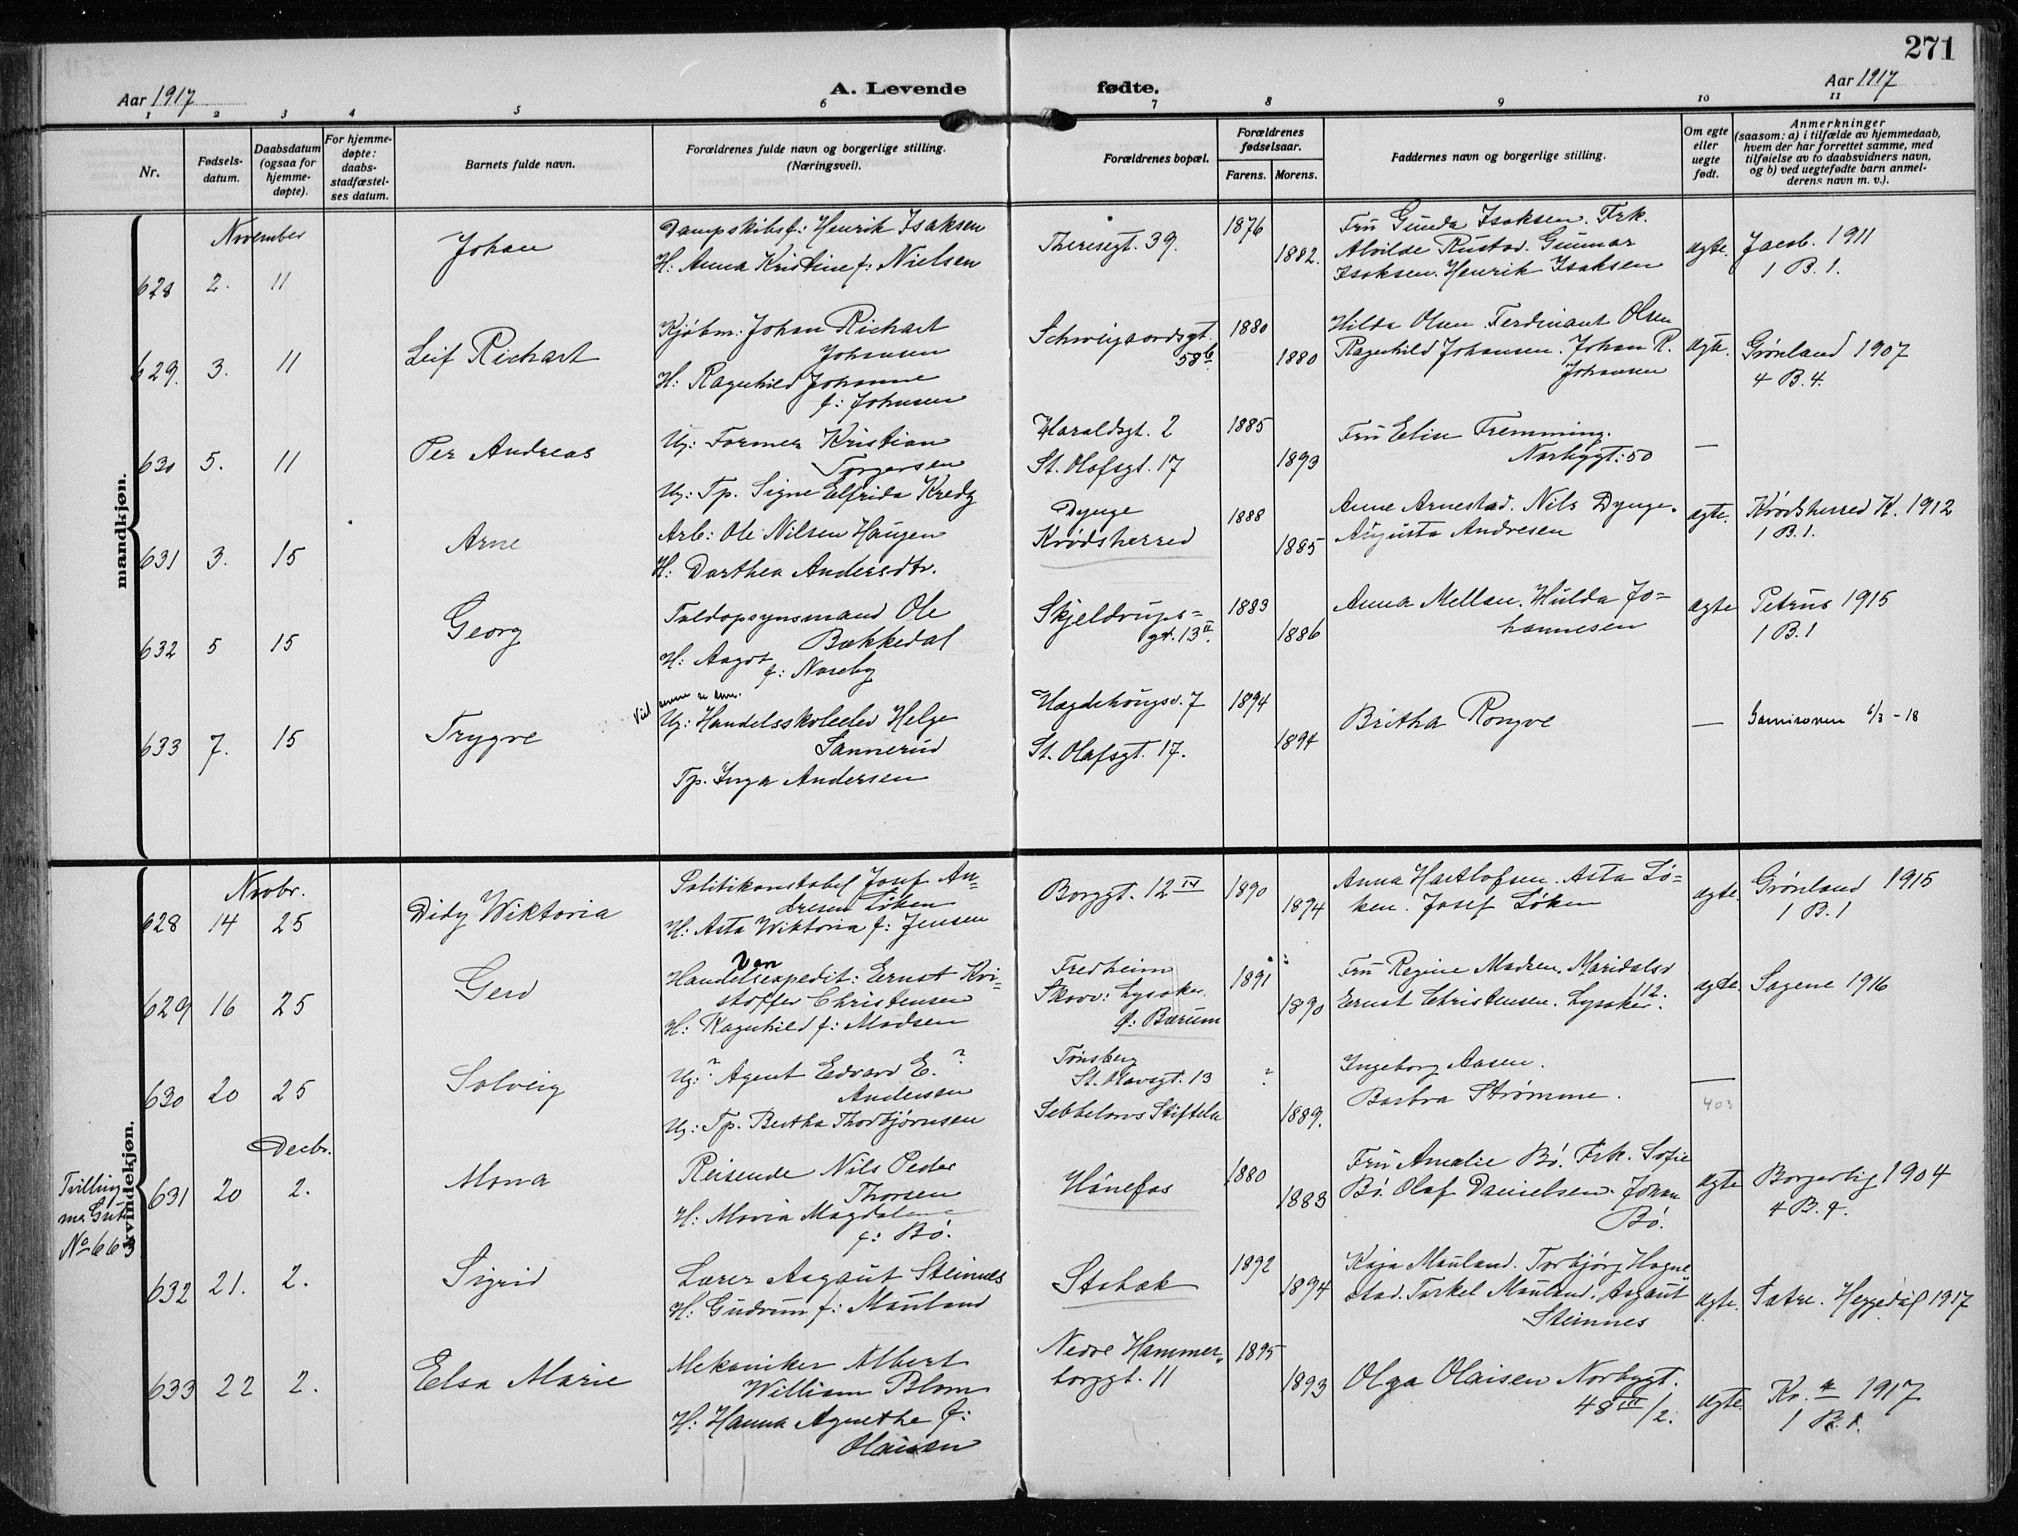 271
Aar 1917
A. Levende fødte.
Aar 1917
1 2 3 4 5 6 7 8 9 10 11
Nr.
Fødsels-
datum.
Daabsdatum
(ogsaa for
hjemme-
døpte).
For hjemme-
døpte:
daabs-
stadfæstel-
ses datum.
Barnets fulde navn.
Forældrenes fulde navn og borgerlige stilling.
(Næringsvei).
Forældrenes bopæl.
Forældrenes
fødselsaar.
Farens. Morens.
Faddernes navn og borgerlige stilling.
Om egte
eller
uegte
født.
Anmerkninger
(saasom: a) i tilfælde av hjemmedaab,
hvem der har forrettet samme, med
tilføielse av to daabsvidners navn,
og b) ved uegtefødte barn anmel-
derens navn m. v.).
mandkjøn.
November
628 2. 11 Johan
Dampskibsf: Henrik Isaksen
H: Anna Kristine f: Nielsen
Theresegt. 39.
1876 1882.
Fru Gunda Isaksen. Frk.
Alvilde Rustad. Gunnar
Isaksen. Henrik Isaksen
ægte.
Jacob. 1911
1 B. 1.
629. 3. 11 Leif Richart
Kjøbm: Johan Richart
Johansen
H: Ragnhild Johanne
f: Johnsen
Schweigaardsgt.
58b
1880 1880
Hilda Olsen. Ferdinant Olsen
Ragnhild Johansen. Johan R.
Johansen
ægte.
Grønland 1907
4 B. 4.
630 5. 11 Per Andreas
Ug: Former Kristian
Torgersen
Ug: Tp. Signe Elfrida
Haraldsgt. 2
St. Olafsgt. 17
1885 1893
Fru Elin Fremming.
Norbygt: 50
—
631 3. 15 Arne
Arb: Ole Nilsen Haugen
H: Dorthea Andersdtr.
Dynge
Krødsherred
1888 1885
Anne Arnestad. Nils Dynge.
Augusta Andresen
ægte.
Krødsherred K. 1912
1 B. 1.
632 5 15 Georg
Toldopsynsmand Ole
Bækkedal
H: Aagot
f: Noreby
Skjeldrups=
gt. 13 II.
1883 1886
Anna Mellan. Hulda Jo=
hannesen
ægte
Petrus 1915
1 B. 1
633 7. 15 Trygve
Ug: Handelsskoleelev Helge
Sannerud
Tp. Inga Andersen
Hægdehougsv. 7
St. Olafsgt. 17.
1894 1894
Britha Rongve
—
Garnisonen 6/3 - 18
kvindekjøn.
Novbr.
628 14 25 Didy Wiktoria
Politikonstabel Josef An-
dresen Løken
H: Asta Wiktoria f: Jensen
Borggt. 12 IV
1890 1894
Anna Hartlofsen. Asta Lø=
ken. Josef Løken
ægte.
Grønland 1915
1 B. 1
629 16 25 Gerd
Handelsexpedit: Ernst Kri-
stoffer Christensen
H: Ragnhild f: Madsen
Fredheim
Skovv: Lysaker.
p: Bærum
1891 1890
Fru Regine Madsen. Maridalsv
12.
Ernst Christensen. Lysaker.
ægte.
Sagene 1916
630 20 25 Solveig
Ug: ? Agent Edvard E. ?
Andersen
Ug: Tp. Bertha Thorbjørnsen
Tønsberg
St. Olavsgt. 13
Sebbelows Stiftelse
? 1889.
Ingeborg Aasen.
Barbra Strømme.
—
403
Decbr.
Tvilling
No 663
631 20 2. Mona
Reisende Nils Peder
Thorsen
H: Maria Magdalena
f: Bø.
Hönefos
1880 1883
Fru Amalie Bø. Frk. Sofie
Bø. Olaf Danielsen. Johan
Bø.
ægte
Borgerlig 1904
4 B. 4.
632 21. 2. Sigrid
Lærer Aagaut Steinnes
H: Gudrun f: Mauland
Stabæk
1892 1894
Kaja Mauland. Torbjørg Hogne
stad. Torkel Mauland. Aagaut
Steinnes
ægte.
Sætre. Heggedal 1917
633 22 2. Elsa Marie
Mekaniker Albert
William Blom
H: Hanna Agnethe f:
Olaisen
Nedre Hammer-
borggt. 11
1895 1893
Olga Olaisen Norbygt.
48 III /2.
ægte.
Kr. a 1917
1 B. 1.